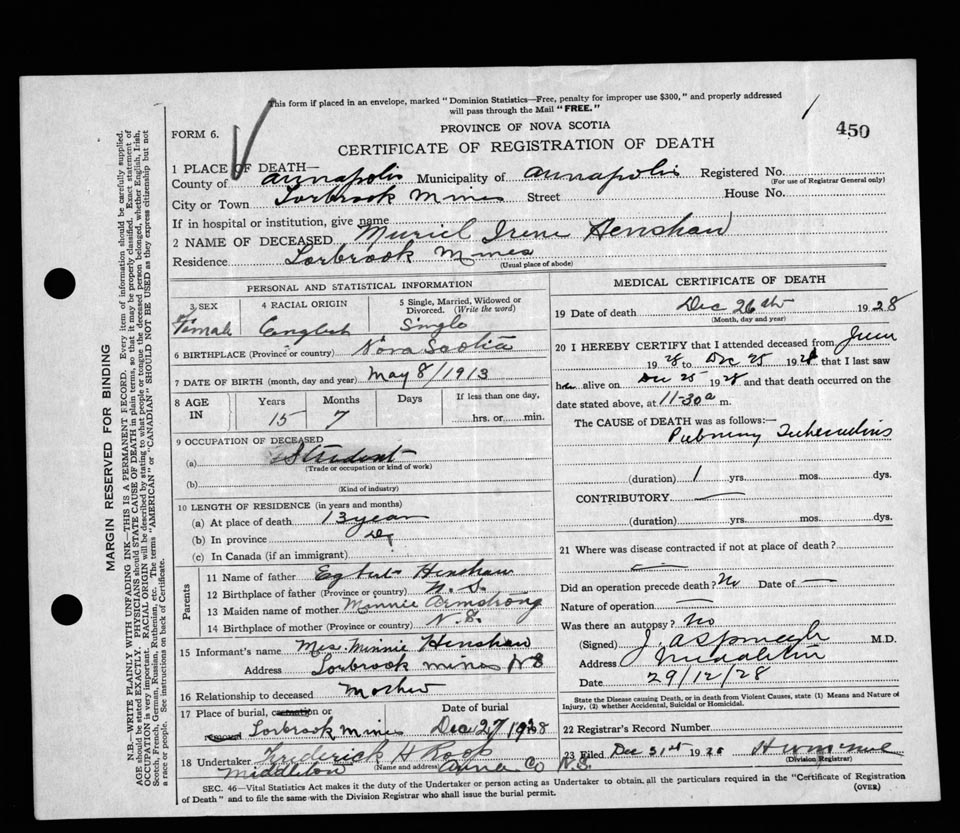 This form if placed in an envelope, marked "Dominion Statistics—Free, penalty for improper use $300," and properly addressed
will pass through the Mail "FREE."
1
450
FORM 6.
PROVINCE OF NOVA SCOTIA
CERTIFICATE OF REGISTRATION OF DEATH
1 PLACE OF DEATH—
County of Annapolis Municipality of Annapolis Registered No.
(For use of Registrar General only)
City or Town Torbrook Mines Street House No.
If in hospital or institution, give name
2 NAME OF DECEASED Muriel Irene Henshaw
Residence Torbrook Mines
(Usual place of abode)
PERSONAL AND STATISTICAL INFORMATION
3 SEX 4 RACIAL ORIGIN 5 Single, Married, Widowed or Divorced. (Write the word)
Female English Single
6 BIRTHPLACE (Province or country) Nova Scotia
7 DATE OF BIRTH (month, day and year) May 8/1913
8 AGE IN Years Months Days If less than one day,
15 7 hrs. or min.
9 OCCUPATION OF DECEASED
(a) Student
(Trade or occupation or kind of work)
(b)
(Kind of industry)
10 LENGTH OF RESIDENCE (in years and months)
(a) At place of death 13 years
(b) In province
(c) In Canada (if an immigrant)
Parents
11 Name of father Egbert Henshaw
12 Birthplace of father (Province or country) N. S.
13 Maiden name of mother Minnie Armstrong
14 Birthplace of mother (Province or country) N. S.
15 Informant's name Mrs. Minnie Henshaw
Address Torbrook mines N S
16 Relationship to deceased Mother
17 Place of burial, cremation or removal Date of burial
Torbrook Mines Dec 27 1928
18 Undertaker Frederick H Roop
(Name and address)
Middleton Anna Co N.S.
MEDICAL CERTIFICATE OF DEATH
19 Date of death Dec 26th 1928
(Month, day and year)
20 I HEREBY CERTIFY that I attended deceased from June
1928 to Dec 25 1928 that I last saw
her alive on Dec 25 1928 and that death occurred on the
date stated above, at 11-30 a m.
The CAUSE of DEATH was as follows:—
Pulmonary Tuberculosis
(duration) 1 yrs. mos. dys.
CONTRIBUTORY —
(duration) yrs. mos. dys.
21 Where was disease contracted if not at place of death?
—
Did an operation precede death? No Date of —
Nature of operation —
Was there an autopsy? No
(Signed) M.D.
Address Middleton
Date 29/12/28
State the Disease causing Death, or in death from Violent Causes, state (1) Means and Nature of
Injury, (2) whether Accidental, Suicidal or Homicidal.
22 Registrar's Record Number
23 Filed Dec 31st 1928
(Division Registrar)
SEC. 46—Vital Statistics Act makes it the duty of the Undertaker or person acting as Undertaker to obtain, all the particulars required in the "Certificate of Registration
of Death" and to file the same with the Division Registrar who shall issue the burial permit.
(OVER)
MARGIN RESERVED FOR BINDING
N.B.—WRITE PLAINLY WITH UNFADING INK—THIS IS A PERMANENT RECORD. Every item of information should be carefully supplied.
AGE should be stated EXACTLY. PHYSICIANS should STATE CAUSE OF DEATH in plain terms, so that it may be properly classified. Exact statement of
OCCUPATION is very important. RACIAL ORIGIN will be described by stating to what people or tongue the deceased person belonged, whether English, Irish,
Scotch, French, German, Russian, Ruthenian, etc. The terms "AMERICAN" or "CANADIAN" SHOULD NOT BE USED as they express citizenship but not
a race or people. See instructions on back of Certificate.